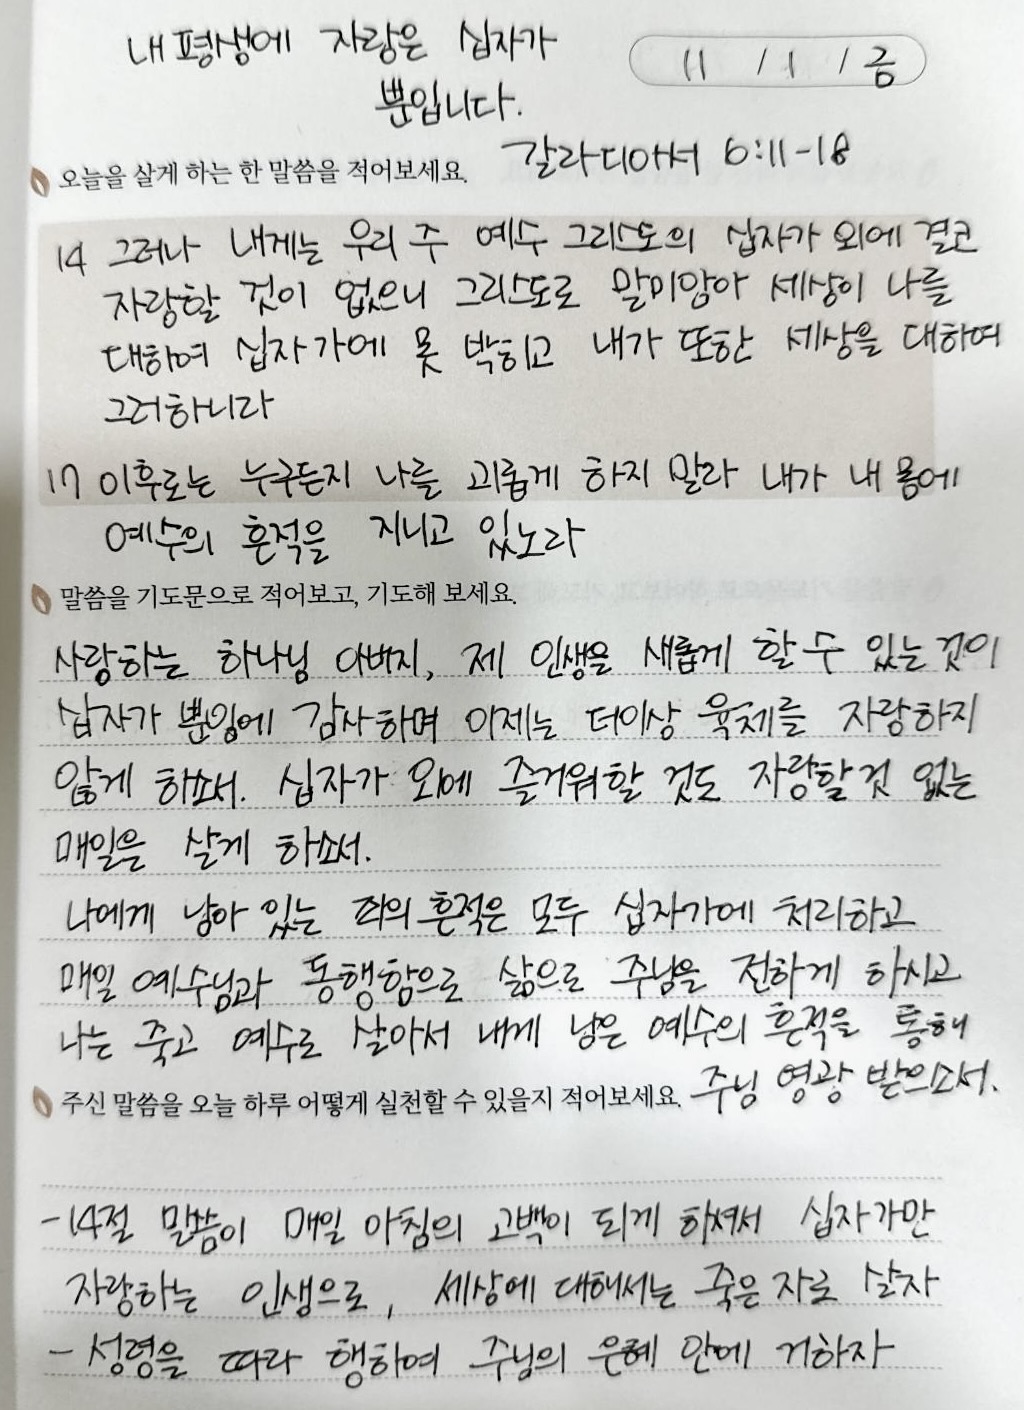 내 평생에 자랑은 십자가
뿐입니다.
11 / 1 / 금
갈라디아서 6:11-18
오늘을 살게 하는 한 말씀을 적어보세요.
14 그러나 내게는 우리 주 예수 그리스도의 십자가 외에 결코
자랑할 것이 없으니 그리스도로 말미암아 세상이 나를
대하여 십자가에 못 박히고 내가 또한 세상을 대하여
그러하니라
17 이후로는 누구든지 나를 괴롭게 하지 말라 내가 내 몸에
예수의 흔적을 지니고 있노라
말씀을 기도문으로 적어보고, 기도해 보세요.
사랑하는 하나님 아버지, 제 인생을 새롭게 할 수 있는 것이
십자가 뿐임에 감사하며 이제는 더이상 육체를 자랑하지
않게 하소서. 십자가 외에 즐거워할 것도 자랑할것 없는
매일을 살게 하소서.
나에게 남아 있는 죄의 흔적은 모두 십자가에 처리하고
매일 예수님과 동행함으로 삶으로 주님을 전하게 하시고
나는 죽고 예수로 살아서 내게 남은 예수의 흔적을 통해
주님 영광 받으소서.
주신 말씀을 오늘 하루 어떻게 실천할 수 있을지 적어보세요.
-14절 말씀이 매일 아침의 고백이 되게 하셔서 십자가만
자랑하는 인생으로, 세상에 대해서는 죽은 자로 살자
- 성령을 따라 행하여 주님의 은혜 안에 거하자